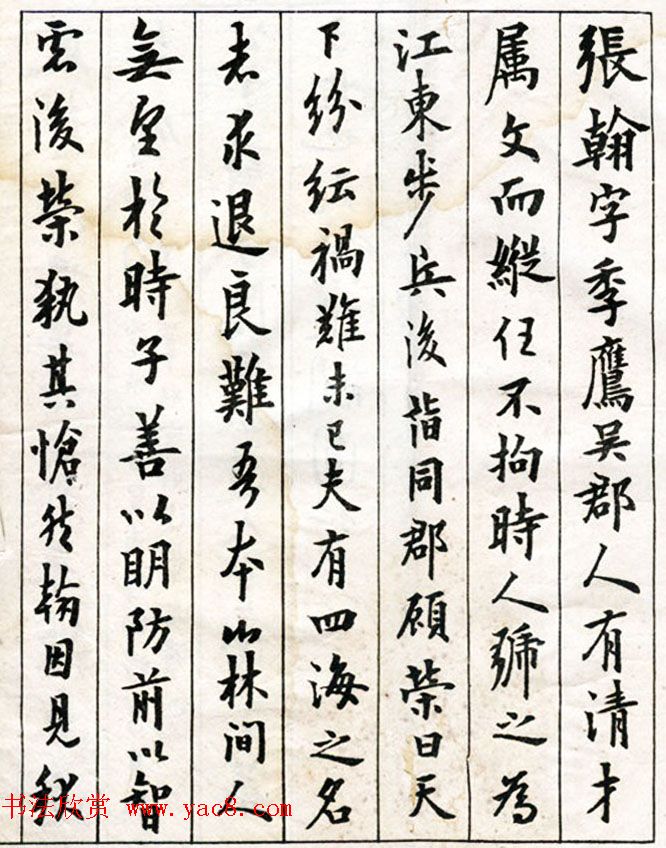 張翰字季鷹吳郡人有清才
属文而縱任不拘時人號之為
江東步兵後謂同郡顧榮曰天
下紛紜禍難未已夫有四海之名
者求退良難吾本山林間人
無望於時子善以明防前以智
慮後榮執其愴然翰因見秋
书法欣赏 www.yac8.com